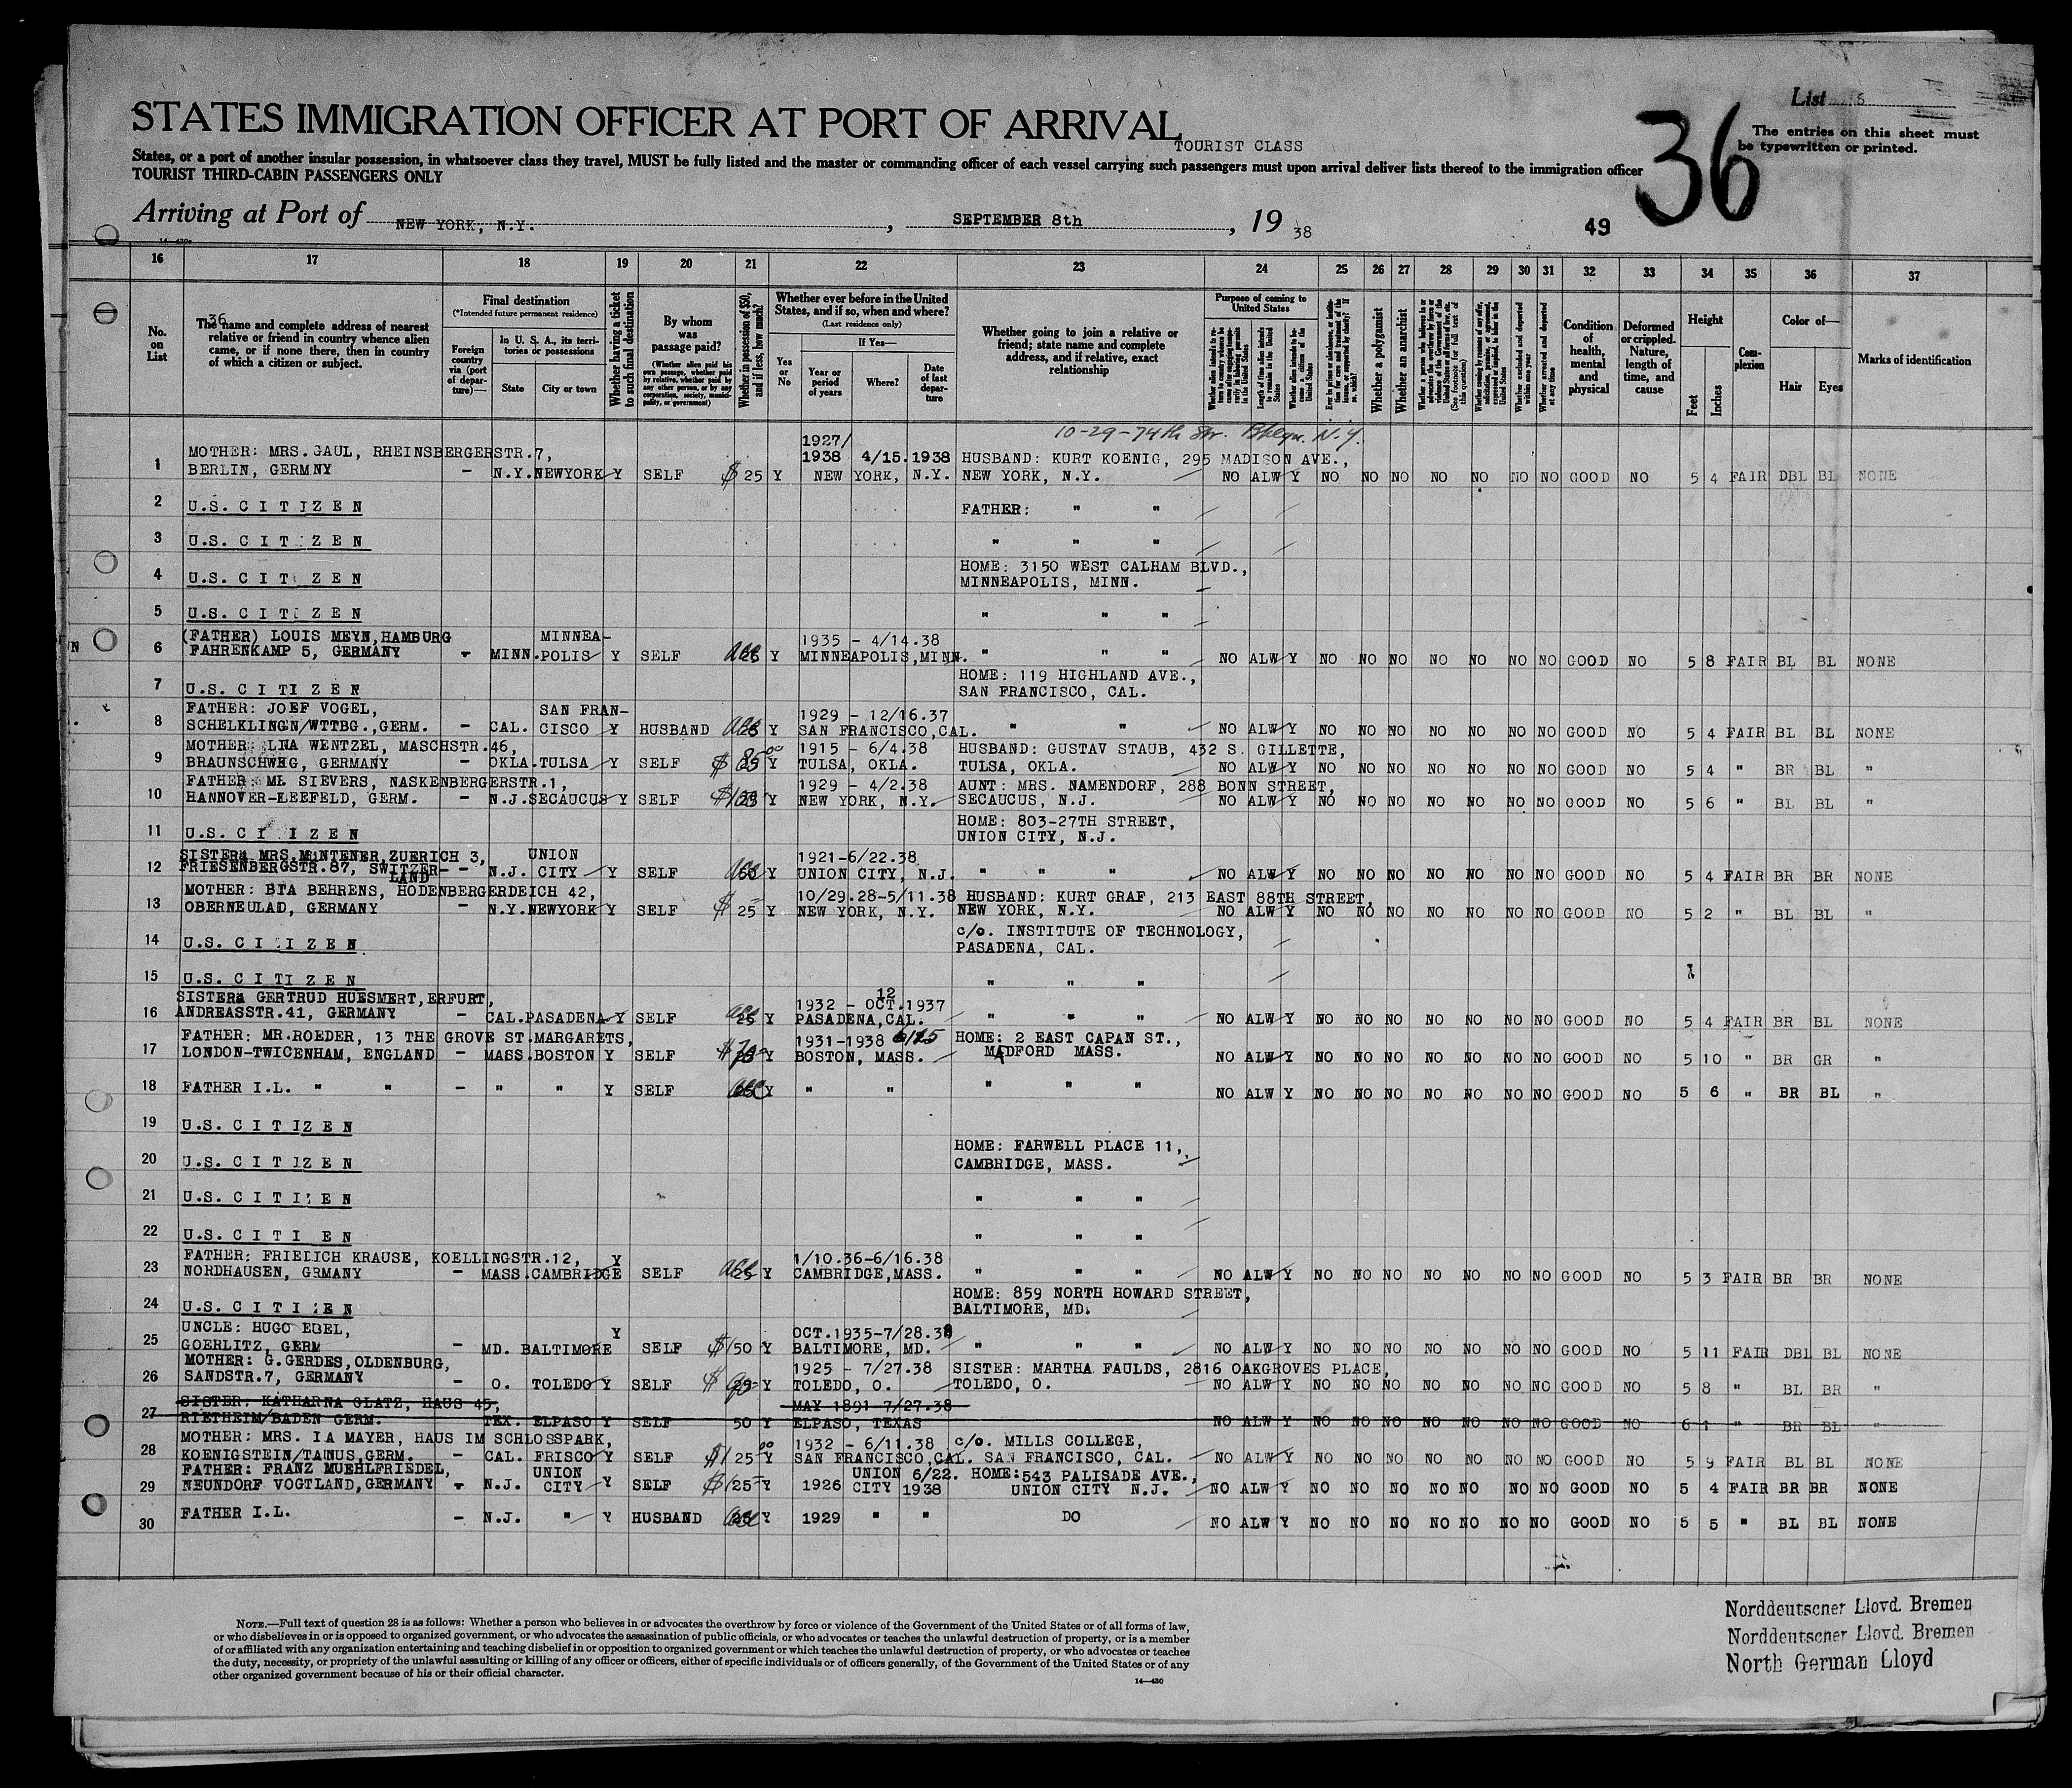 List 6
STATES IMMIGRATION OFFICER AT PORT OF ARRIVAL
TOURIST CLASS
36
The entries on this sheet must
be typewritten or printed.
States, or a port of another insular possession, in whatsoever class they travel, MUST be fully listed and the master or commanding officer of each vessel carrying such passengers must upon arrival deliver lists thereof to the immigration officer
TOURIST THIRD-CABIN PASSENGERS ONLY
Arriving at Port of NEW YORK, N.Y. , SEPTEMBER 8th , 19 38
49
16 17 18 19 20 21 22 23 24 25 26 27 28 29 30 31 32 33 34 35 36 37
No. on List
36
The name and complete address of nearest relative or friend in country whence alien came, or if none there, then in country of which a citizen or subject.
Final destination
(*Intended future permanent residence)
Foreign country via (port of departure)—
In U. S. A., its territories or possessions
State
City or town
Whether having a ticket to such final destination
By whom was passage paid?
(Whether alien paid his own passage, whether paid by relative, whether paid by any other person, or by any corporation, society, municipality, or government)
Whether in possession of $50, and if less, how much?
Whether ever before in the United States, and if so, when and where?
(Last residence only)
Yes or No
If Yes—
Year or period of years
Where?
Date of last departure
Whether going to join a relative or friend; state name and complete address, and if relative, exact relationship
Purpose of coming to United States
Whether a polygamist
Whether an anarchist
Whether excluded and deported within one year
Whether arrested and deported at any time
Condition of health, mental and physical
Deformed or crippled. Nature, length of time, and cause
Height
Feet
Inches
Complexion
Color of—
Hair
Eyes
Marks of identification
10-29-74th Str. Bklyn. N.Y.
1 MOTHER: MRS. GAUL, RHEINSBERGERSTR.7, 1927/
BERLIN, GERMNY – N.Y. NEWYORK Y SELF $ 25 Y 1938 4/15.1938 NEW YORK, N.Y. HUSBAND: KURT KOENIG, 295 MADISON AVE., NEW YORK, N.Y. NO ALW Y NO NO NO NO NO NO NO GOOD NO 5 4 FAIR DBL BL NONE
2 U.S. C I T I Z E N FATHER: " "
3 U.S. C I T Z E N " " "
4 U.S. C I T Z E N HOME: 3150 WEST CALHAM BLVD., MINNEAPOLIS, MINN.
5 U.S. C I T I Z E N " " "
6 (FATHER) LOUIS MEYN, HAMBURG
FAHRENKAMP 5, GERMANY – MINN. MINNEA-POLIS Y SELF Y 1935 – 4/14.38 MINNEAPOLIS, MINN. " " " NO ALW Y NO NO NO NO NO NO NO GOOD NO 5 8 FAIR BL BL NONE
7 U.S. C I T I Z E N HOME: 119 HIGHLAND AVE., SAN FRANCISCO, CAL.
8 FATHER: JOEF VOGEL,
SCHELKLINGN/WTTBG., GERM. – CAL. SAN FRAN-CISCO Y HUSBAND Y 1929 – 12/16.37 SAN FRANCISCO, CAL. " " NO ALW Y NO NO NO NO NO NO NO GOOD NO 5 4 FAIR BL BL NONE
9 MOTHER: LINA WENTZEL, MASCHSTR.46,
BRAUNSCHWHG, GERMANY – OKLA. TULSA Y SELF $ Y 1915 – 6/4.38 TULSA, OKLA. HUSBAND: GUSTAV STAUB, 432 S. GILLETTE, TULSA, OKLA. NO ALW Y NO NO NO NO NO NO NO GOOD NO 5 4 " BR BL "
10 FATHER: MR. SIEVERS, NASKENBERGERSTR.1,
HANNOVER-LEEFELD, GERM. – N.J. SECAUCUS Y SELF Y 1929 – 4/2.38 NEW YORK, N.Y. AUNT: MRS. NAMENDORF, 288 BONN STREET, SECAUCUS, N.J. NO ALW Y NO NO NO NO NO NO NO GOOD NO 5 6 " BL BL "
11 U.S. C I I Z E N HOME: 803-27TH STREET, UNION CITY, N.J.
12 SISTER: MRS. MUNTENER, ZUERICH 3,
FRIESENBERGSTR.87, SWITZER-LAND – N.J. UNION CITY Y SELF Y 1921-6/22.38 UNION CITY, N.J. " " " NO ALW Y NO NO NO NO NO NO NO GOOD NO 5 4 FAIR BR BR NONE
13 MOTHER: BTA BEHRENS, HODENBERGERDEICH 42,
OBERNEULAD, GERMANY – N.Y. NEWYORK Y SELF $ 25 Y 10/29.28-5/11.38 NEW YORK, N.Y. HUSBAND: KURT GRAF, 213 EAST 88TH STREET, NEW YORK, N.Y. NO ALW Y NO NO NO NO NO NO NO GOOD NO 5 2 " BL BL "
14 U.S. C I I Z E N c/o. INSTITUTE OF TECHNOLOGY, PASADENA, CAL.
15 U.S. C I T I Z E N " " "
16 SISTER: GERTRUD HUESMERT, ERFURT,
ANDREASSTR.41, GERMANY – CAL. PASADENA Y SELF Y 1932 – OCT. 12 1937 PASADENA, CAL. " " " NO ALW Y NO NO NO NO NO NO NO GOOD NO 5 4 FAIR BR BL NONE
17 FATHER: MR. ROEDER, 13 THE GROVE ST. MARGARETS,
LONDON-TWICENHAM, ENGLAND – MASS. BOSTON Y SELF Y 1931-1938 6/15 BOSTON, MASS. HOME: 2 EAST CAPAN ST., MADFORD MASS. NO ALW Y NO NO NO NO NO NO NO GOOD NO 5 10 " BR GR "
18 FATHER I.L. " " – " " Y SELF Y " " " " " NO ALW Y NO NO NO NO NO NO NO GOOD NO 5 6 " BR BL "
19 U.S. C I T I Z E N
20 U.S. C I T I Z E N HOME: FARWELL PLACE 11, CAMBRIDGE, MASS.
21 U.S. C I T I Z E N " " "
22 U.S. C I T I E N " " "
23 FATHER: FRIEDICH KRAUSE, KOELLINGSTR.12,
NORDHAUSEN, GRMANY – MASS. CAMBRIDGE Y SELF Y 1/10.36-6/16.38 CAMBRIDGE, MASS. " " " NO ALW Y NO NO NO NO NO NO NO GOOD NO 5 3 FAIR BR BR NONE
24 U.S. C I T I Z E N HOME: 859 NORTH HOWARD STREET, BALTIMORE, MD.
25 UNCLE: HUGO EBEL,
GOERLITZ, GERM – MD. BALTIMORE Y SELF $150 Y OCT.1935-7/28.38 BALTIMORE, MD. " " " NO ALW Y NO NO NO NO NO NO NO GOOD NO 5 11 FAIR DBL BL NONE
26 MOTHER: G. GERDES, OLDENBURG,
SANDSTR.7, GERMANY – O. TOLEDO Y SELF $ Y 1925 – 7/27.38 TOLEDO, O. SISTER: MARTHA FAULDS, 2816 OAKGROVES PLACE, TOLEDO, O. NO ALW Y NO NO NO NO NO NO NO GOOD NO 5 8 " BL BR "
27 SISTER: KATHARNA GLATZ, HAUS 45,
RIETHEIM/BADEN GERM. TEX. ELPASO Y SELF 50 Y MAY 1891-7/27.38 ELPASO, TEXAS NO ALW Y NO NO NO NO NO NO NO GOOD NO 6 1 " BR BL "
28 MOTHER: MRS. IA MAYER, HAUS IM SCHLOSSPARK,
KOENIGSTEIN/TAUNUS, GERM. – CAL. FRISCO Y SELF $125 00 Y 1932 – 6/11.38 SAN FRANCISCO, CAL. c/o. MILLS COLLEGE, SAN FRANCISCO, CAL. NO ALW Y NO NO NO NO NO NO NO GOOD NO 5 9 FAIR BL BL NONE
29 FATHER: FRANZ MUEHLFRIEDEL,
NEUNDORF VOGTLAND, GERMANY – N.J. UNION CITY Y SELF $125 Y 1926 UNION CITY 6/22. 1938 HOME: 543 PALISADE AVE., UNION CITY N.J. NO ALW Y NO NO NO NO NO NO NO GOOD NO 5 4 FAIR BR BR NONE
30 FATHER I.L. – N.J. " Y HUSBAND Y 1929 " " DO NO ALW Y NO NO NO NO NO NO NO GOOD NO 5 5 " BL BL NONE
NOTE.—Full text of question 28 is as follows: Whether a person who believes in or advocates the overthrow by force or violence of the Government of the United States or of all forms of law,
or who disbelieves in or is opposed to organized government, or who advocates the assassination of public officials, or who advocates or teaches the unlawful destruction of property, or is a member
of or affiliated with any organization entertaining and teaching disbelief in or opposition to organized government or which teaches the unlawful destruction of property, or who advocates or teaches
the duty, necessity, or propriety of the unlawful assaulting or killing of any officer or officers, either of specific individuals or of officers generally, of the Government of the United States or of any
other organized government because of his or their official character.
14—430
Norddeutscher Lloyd Bremen
Norddeutscher Lloyd Bremen
North German Lloyd